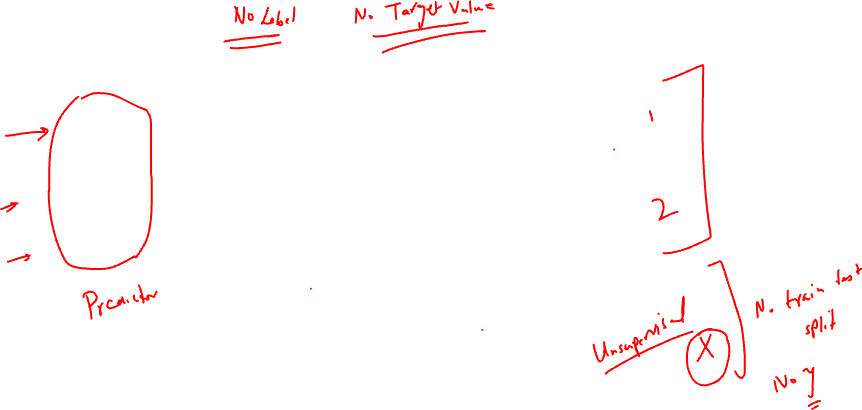 No Label
No Target Value
1
2
Predictor
Unsupervised
X
No train test
split
No y